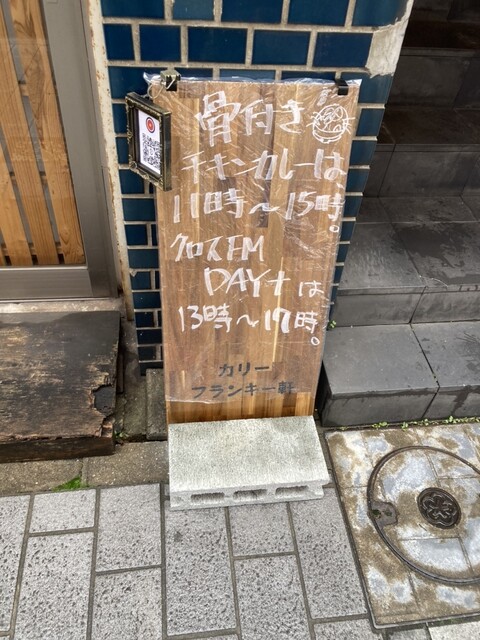 骨付き
チキンカレーは、
11時～15時。
クロスFM
DAY+は、
13時～17時。
カリー
フランキー軒